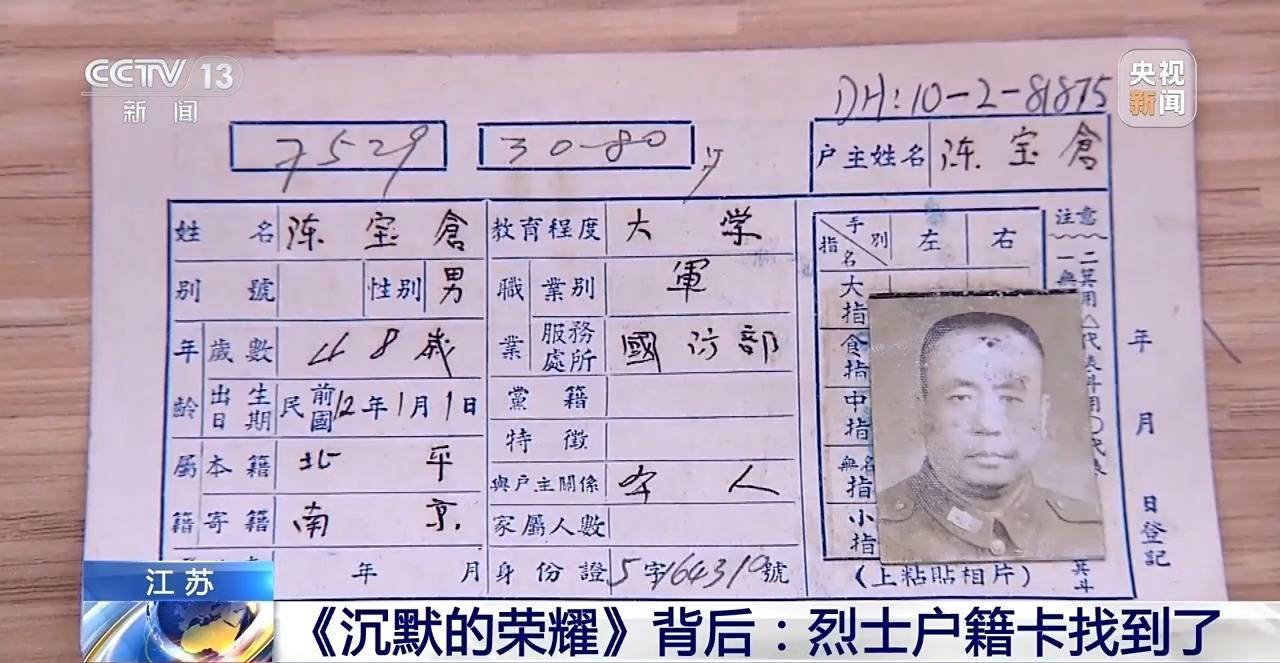 CCTV 13
新闻
央视
新闻
DH:10-2-81875
7529
30-80
户主姓名 陈宝倉
姓名 陈宝倉
教育程度 大学
别號
性别 男
職業 業别 軍
年齡 歲數 48歲
服務處所 國防部
出生日期 民國前12年1月1日
黨籍
特徵
屬籍 本籍 北平
與戶主關係 本人
寄籍 南京
家屬人數
年 月
身份證 5字164319號
手别 指名 左 右
大指
食指
中指
無名指
小指
(上粘貼相片)
注意
一
二箕用△代表斗用○代表
箕斗
年 月 日登記
江苏
《沉默的荣耀》背后：烈士户籍卡找到了